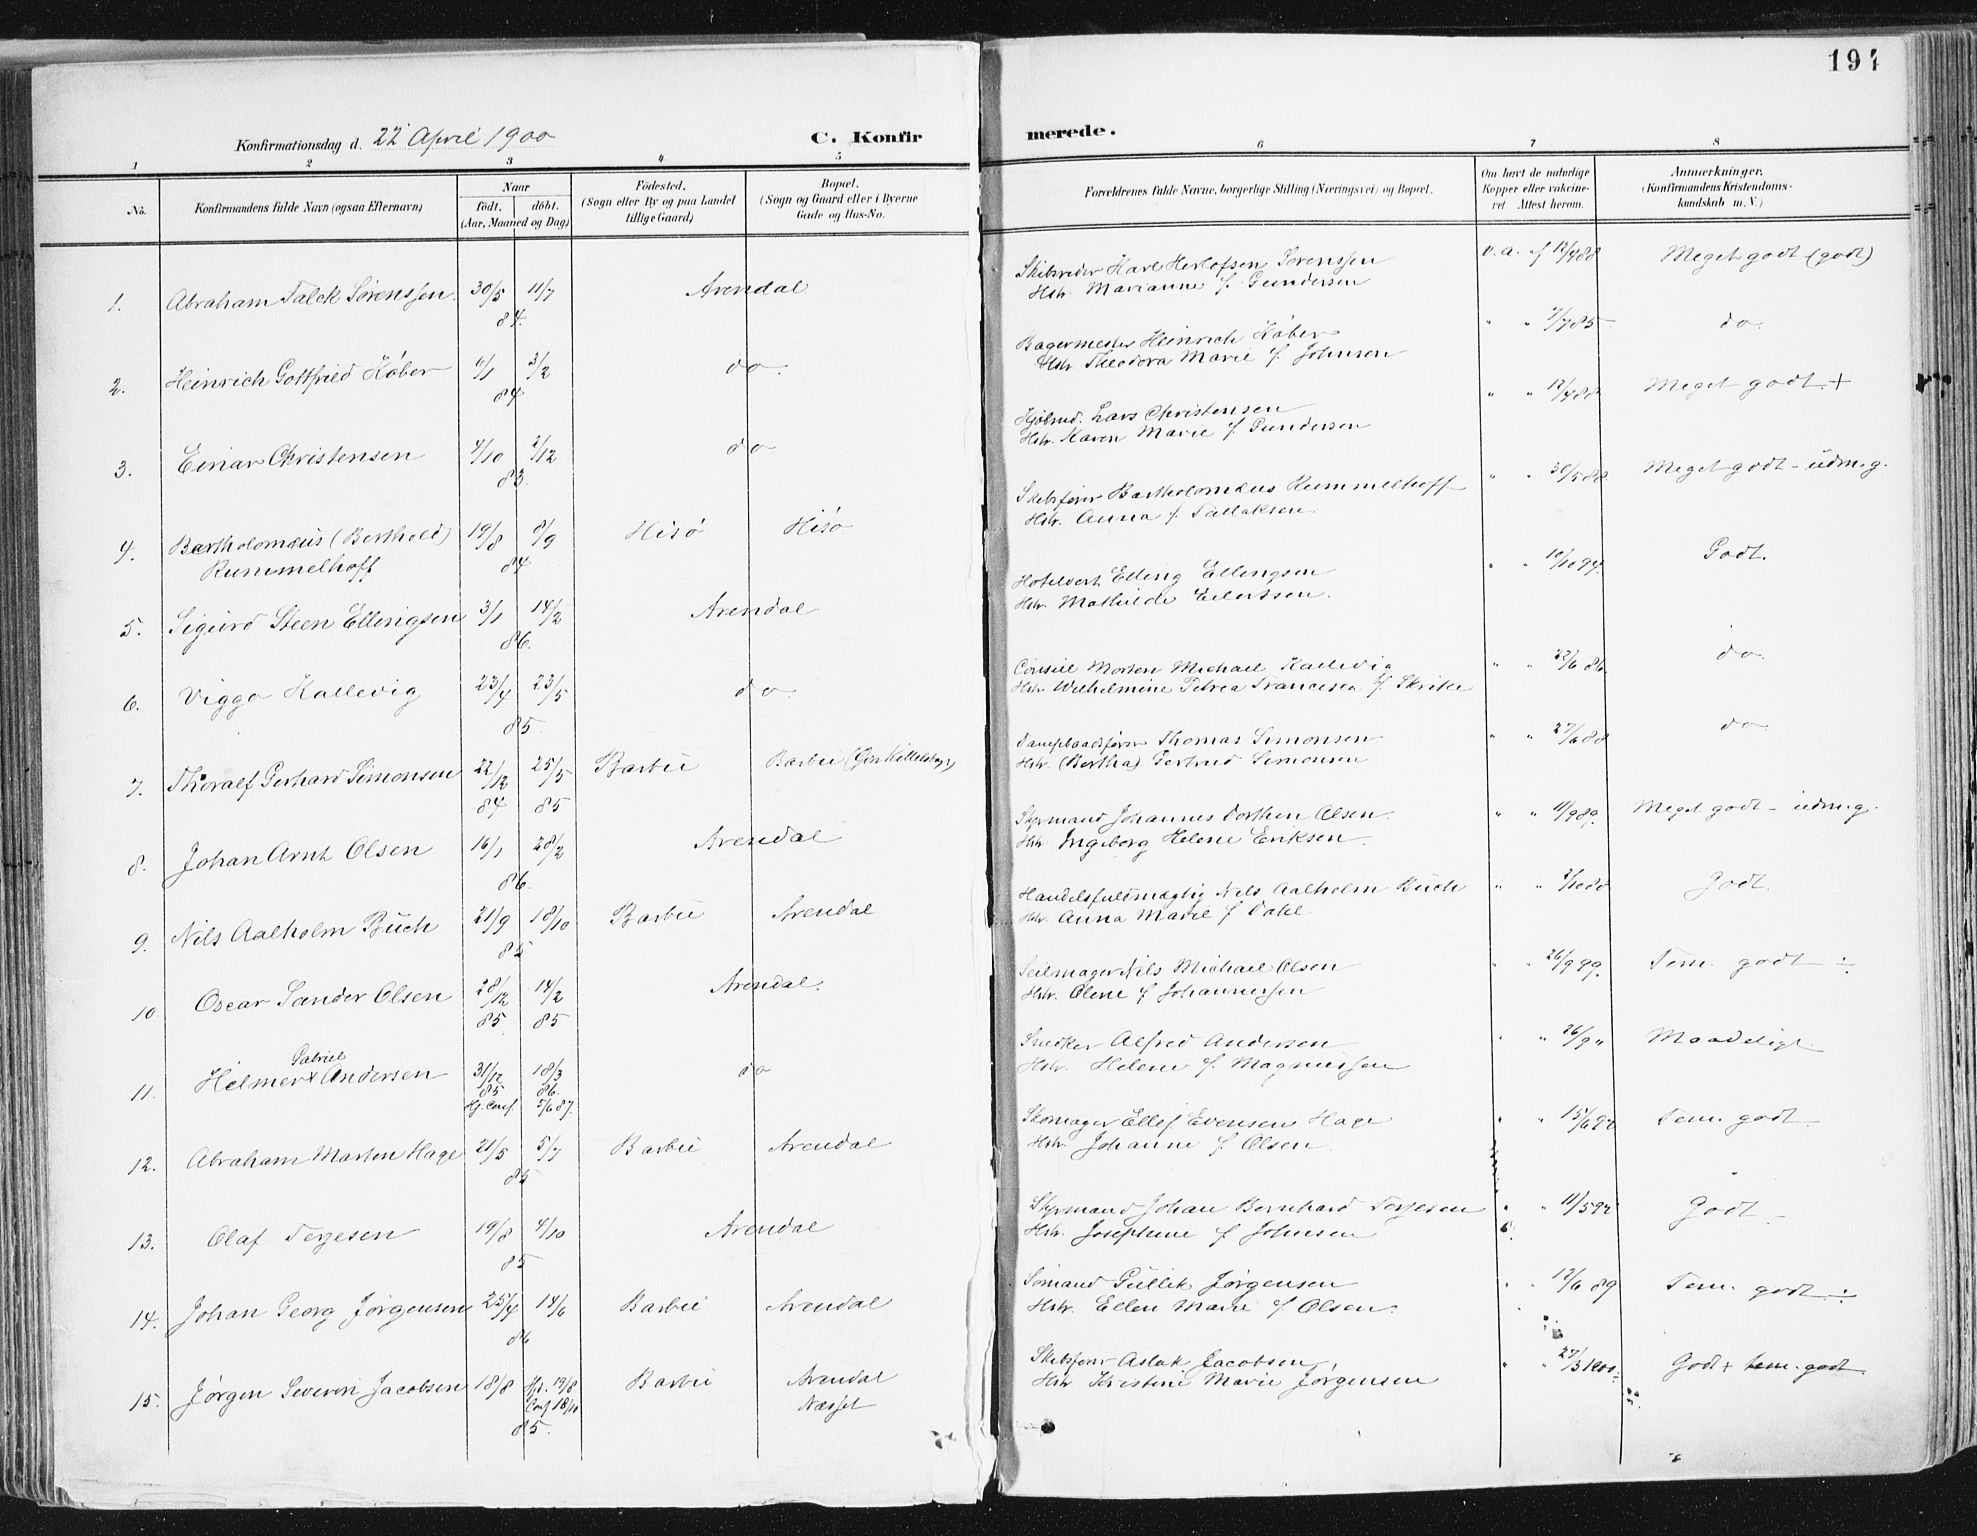 194
Konfirmationsdag d. 22 April 1900
C. Konfirmerede.
1 2 3 4 5 6 7 8
No.
Konfirmandens fulde Navn (ogsaa Efternavn)
Naar
født. døbt.
(Aar, Maaned og Dag)
Fødested.
(Sogn eller By og paa Landet
tillige Gaard)
Bopæl.
(Sogn og Gaard eller i Byerne
Gade og Hus-No.
Forældrenes fulde Navne, borgerlige Stilling (Næringsvei) og Bopæl.
Om havt de naturlige
Kopper eller vakcine-
ret. Attest herom.
Anmærkninger,
(Konfirmandens Kristendoms-
kundskab m. V.)
1. Abraham Falck Sørenssen. 30/5 11/7 84. Arendal
Skibsreder Karl Herlofsen Sørenssen
Hstr. Marianne f. Gundersen
v. a. af 12/4 88 Meget godt (godt)
2. Heinrich Gottfried Køber 6/1 3/2 84 do.
Bagermester Heinrich Køber
Hstr. Theodora Marie f. Johnson
" " 7/7 85 do.
3. Einar Christensen 4/10 2/12 83. do
Lars Christensen
Hstr. Karen Marie f. Gundersen
" " 12/4 88 Meget godt. +
4. Bartholomæus (Berthold) 19/8 8/9 84 Hisø Hisø
Rummelhoff
Skibsfører Bartholomæus Rummelhoff
Hstr. Anna f. Tallaksen.
" " 30/5 88. Meget godt - udm. g.
5. Sigurd Steen Ellingsen 3/1 14/2 86. Arendal
Hotelvert Elling Ellingsen
Hstr. Mathilde Eilertssen.
" " 10/10 94. Godt.
6. Viggo Kallevig 23/4 23/5 85. do.
Consul Morten Michael Kallevig
Hstr. Wilhelmine Petrea Francisca f. Skrike
" " 22/6 86. do.
7. Thoralf Gerhard Simonsen 22/12 84 25/5 85 Barbu Barbu
Dampbaadsfører Thomas Simonsen
Hstr. (Bertha) Gertrud Simonsen
" " 27/6 88 do
8. Johan Arnt Olsen 16/1 28/2 86. Arendal
Styrmand Johannes Dorthen Olsen.
Hstr. Ingeborg Helene Eriksen.
" " 11/9 89. Meget godt - udm. g.
9. Nils Aalholm Buch 21/9 18/10 85 Barbu Arendal
Handelsfuldmægtig Nils Aalholm Buch
Hstr. Anna Marie f. Dahl.
" " 3/10 88 Godt.
10. Oscar Sander Olsen 28/12 85 14/2 85 Arendal.
Seilmager Nils Michael Olsen
Hstr. Olene f. Johannessen
" " 26/9 99. Tem. godt ÷
11. Helmer Gabriel Andersen 31/12 85 18/3 86. do
Hj. Conf. 5/6 87.
Snedker Alfred Andersen
Hstr. Helene f. Magnussen
" " 26/9 " Maadeligt.
12. Abraham Marton Hage 21/5 5/7 85 Barbu Arendal
Skomager Ellef Evensen Hage
Hstr. Johanne f. Olsen.
" " Tem. godt.
13. Olaf Terjesen 19/8 4/10 85 Arendal
Styrmand Johan Bernhard Terjesen
Hstr. Josephine f. Johnsen
" " Godt -
14. Johan Georg Jørgensen 25/4 14/6 86 Barbu Arendal
Sømand Gullik Jørgensen
Hstr. Ellen Marie f. Olsen.
" " 12/6 89 Tem. godt ÷
15. Jørgen Severin Jacobsen 18/8 Hj. 19/8 Barbu Arendal
Conf 18/10 85. Næsset
Skibsfører Aslak Jacobsen
Hstr Kristine Marie Jørgensen
" " 27/3 1900 Godt + tem. godt